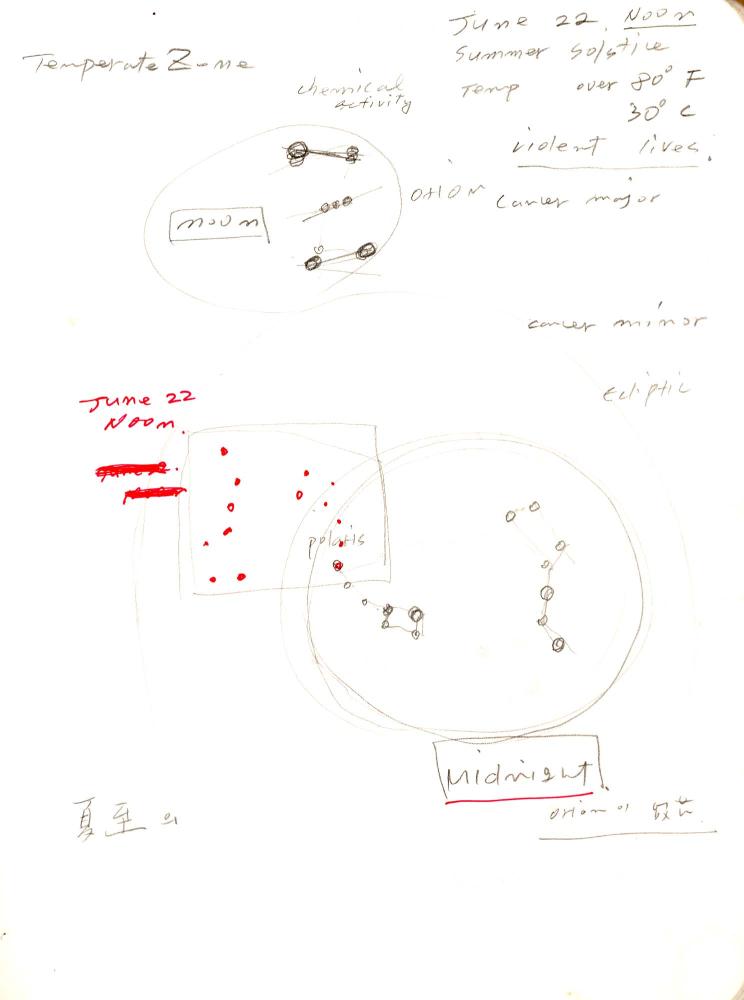 June 22, Noon
Summer Solstice
Temperate Zone
Temp over 80° F
30° C
chemical
activity
violent lives.
ORION
Cancer major
noon
cancer minor
Ecliptic
June 22
Noon.
polaris
Midnight.
夏至의
orion의